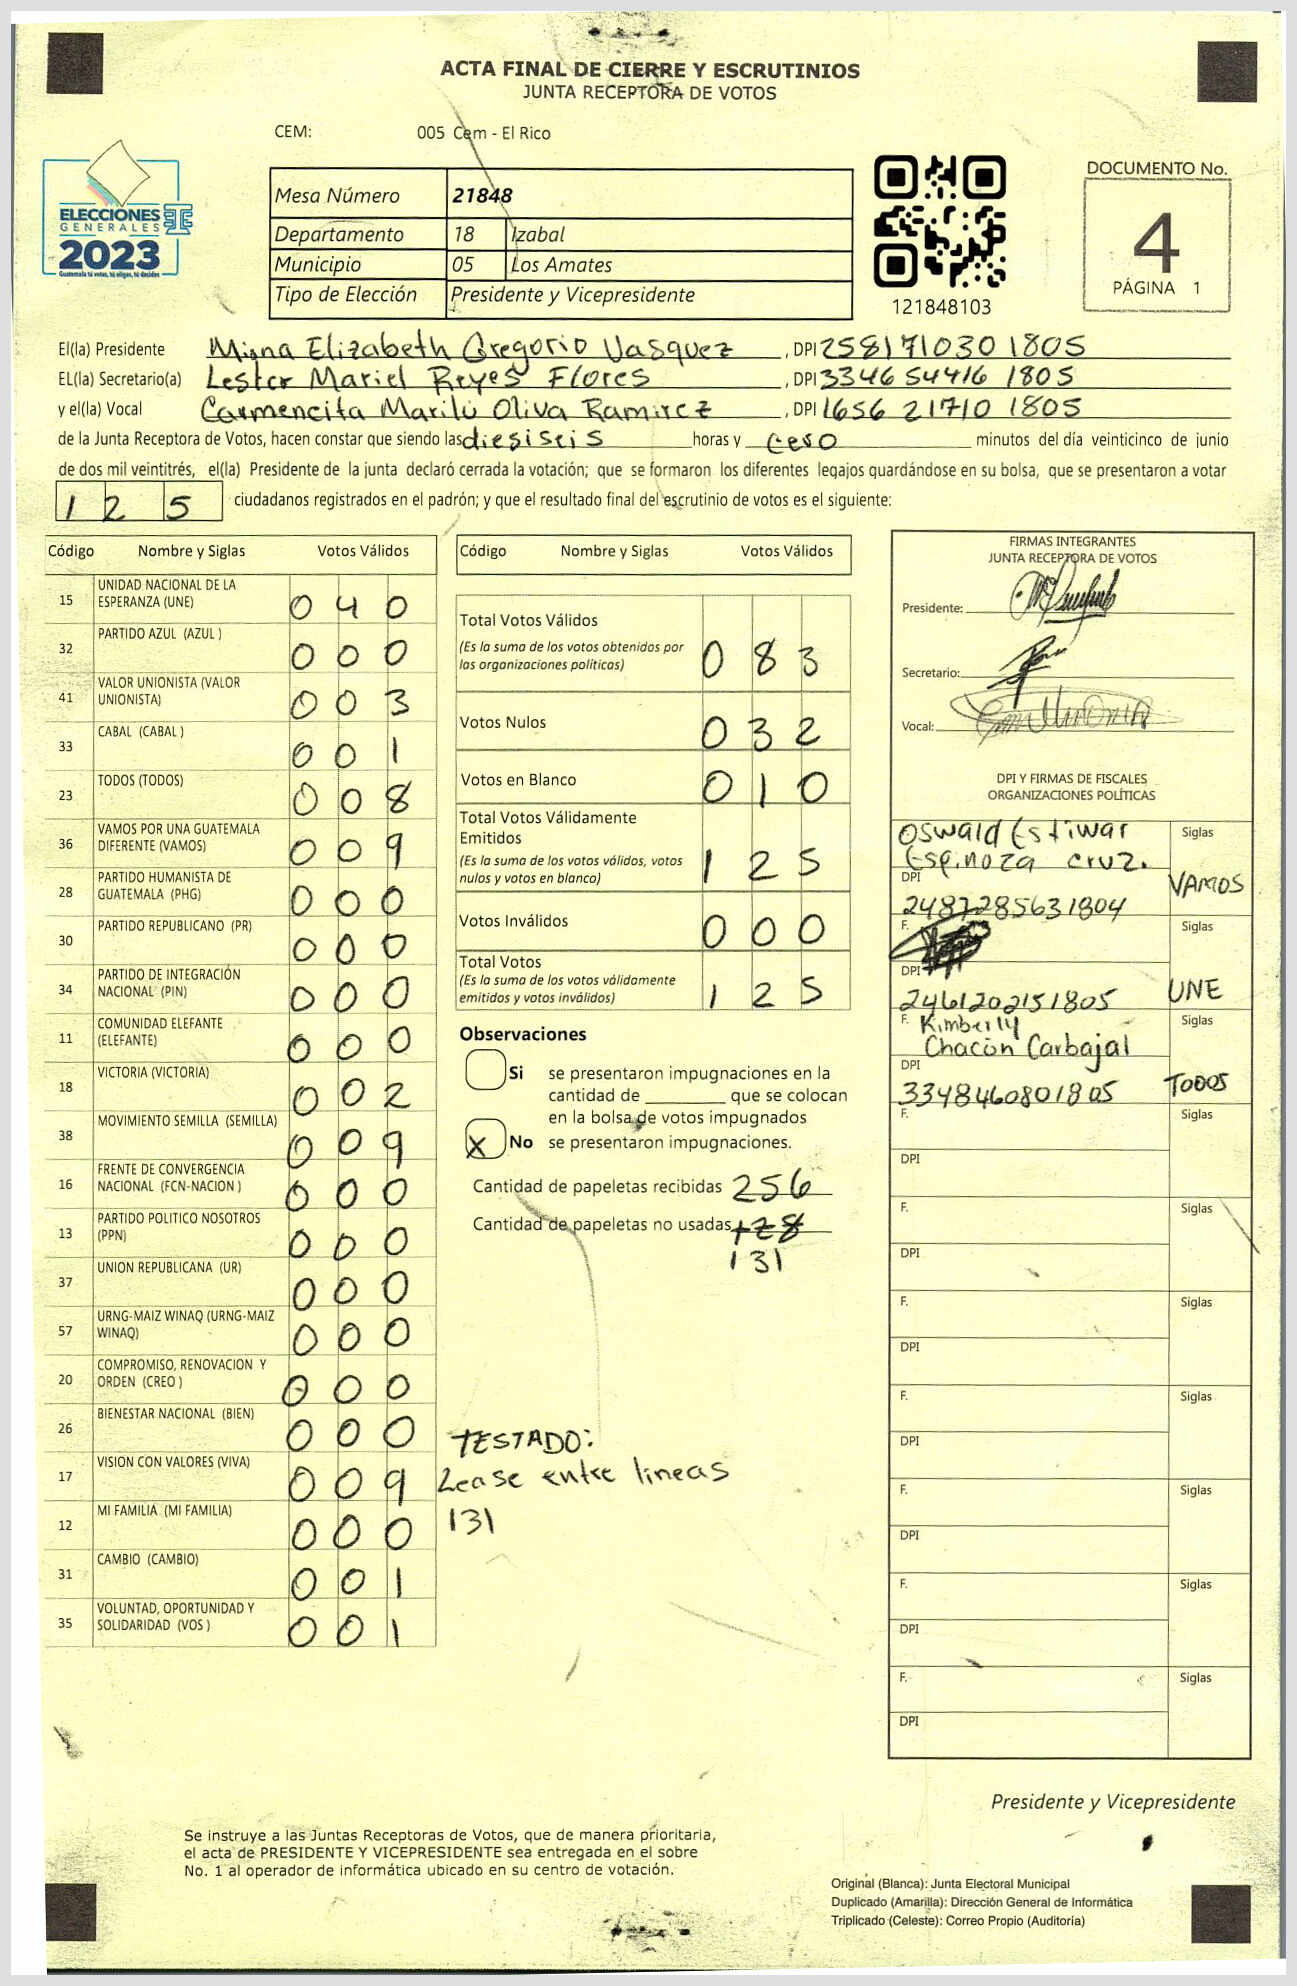 ACTA FINAL DE CIERRE Y ESCRUTINIOS
JUNTA RECEPTORA DE VOTOS
CEM: 005 Cem - El Rico
ELECCIONES
GENERALES
2023
Guatemala tú votas, tú eliges, tú decides
Mesa Número 21848
Departamento 18 Izabal
Municipio 05 Los Amates
Tipo de Elección Presidente y Vicepresidente
121848103
DOCUMENTO No.
4
PÁGINA 1
El(la) Presidente Migna Elizabeth Gregorio Vasquez , DPI 258171030 1805
EL(la) Secretario(a) Lester Mariel Reyes Flores , DPI 3346 54416 1805
y el(la) Vocal Carmencita Marilú Oliva Ramirez , DPI 1656 21710 1805
de la Junta Receptora de Votos, hacen constar que siendo las diesiseis horas y cero minutos del día veinticinco de junio
de dos mil veintitrés, el(la) Presidente de la junta declaró cerrada la votación; que se formaron los diferentes legajos guardándose en su bolsa, que se presentaron a votar
1 2 5 ciudadanos registrados en el padrón; y que el resultado final del escrutinio de votos es el siguiente:
Código Nombre y Siglas Votos Válidos
15 UNIDAD NACIONAL DE LA
ESPERANZA (UNE) 0 4 0
32 PARTIDO AZUL (AZUL ) 0 0 0
41 VALOR UNIONISTA (VALOR
UNIONISTA) 0 0 3
33 CABAL (CABAL ) 0 0 1
23 TODOS (TODOS) 0 0 8
36 VAMOS POR UNA GUATEMALA
DIFERENTE (VAMOS) 0 0 9
28 PARTIDO HUMANISTA DE
GUATEMALA (PHG) 0 0 0
30 PARTIDO REPUBLICANO (PR) 0 0 0
34 PARTIDO DE INTEGRACIÓN
NACIONAL (PIN) 0 0 0
11 COMUNIDAD ELEFANTE
(ELEFANTE) 0 0 0
18 VICTORIA (VICTORIA) 0 0 2
38 MOVIMIENTO SEMILLA (SEMILLA) 0 0 9
16 FRENTE DE CONVERGENCIA
NACIONAL (FCN-NACION ) 0 0 0
13 PARTIDO POLITICO NOSOTROS
(PPN) 0 0 0
37 UNION REPUBLICANA (UR) 0 0 0
57 URNG-MAIZ WINAQ (URNG-MAIZ
WINAQ) 0 0 0
20 COMPROMISO, RENOVACION Y
ORDEN (CREO ) 0 0 0
26 BIENESTAR NACIONAL (BIEN) 0 0 0
17 VISION CON VALORES (VIVA) 0 0 9
12 MI FAMILIA (MI FAMILIA) 0 0 0
31 CAMBIO (CAMBIO) 0 0 1
35 VOLUNTAD, OPORTUNIDAD Y
SOLIDARIDAD (VOS ) 0 0 1
Código Nombre y Siglas Votos Válidos
Total Votos Válidos
(Es la suma de los votos obtenidos por
las organizaciones políticas) 0 8 3
Votos Nulos 0 3 2
Votos en Blanco 0 1 0
Total Votos Válidamente
Emitidos
(Es la suma de los votos válidos, votos
nulos y votos en blanco) 1 2 5
Votos Inválidos 0 0 0
Total Votos
(Es la suma de los votos válidamente
emitidos y votos inválidos) 1 2 5
Observaciones
Si se presentaron impugnaciones en la
cantidad de ________ que se colocan
en la bolsa de votos impugnados
X No se presentaron impugnaciones.
Cantidad de papeletas recibidas 256
Cantidad de papeletas no usadas 128
131
TESTADO:
Lease entre lineas
131
FIRMAS INTEGRANTES
JUNTA RECEPTORA DE VOTOS
Presidente:
Secretario:
Vocal:
DPI Y FIRMAS DE FISCALES
ORGANIZACIONES POLÍTICAS
Oswald Estiwar Siglas
Espinoza cruz.
DPI VAMOS
2487285631804
F. Siglas
DPI
2461202151805 UNE
F. Kimberly Siglas
Chacón Carbajal
DPI
3348460801805 TODOS
F. Siglas
DPI
F. Siglas
DPI
F. Siglas
DPI
F. Siglas
DPI
F. Siglas
DPI
F. Siglas
DPI
F. Siglas
DPI
Presidente y Vicepresidente
Se instruye a las Juntas Receptoras de Votos, que de manera prioritaria,
el acta de PRESIDENTE Y VICEPRESIDENTE sea entregada en el sobre
No. 1 al operador de informática ubicado en su centro de votación.
Original (Blanca): Junta Electoral Municipal
Duplicado (Amarilla): Dirección General de Informática
Triplicado (Celeste): Correo Propio (Auditoría)